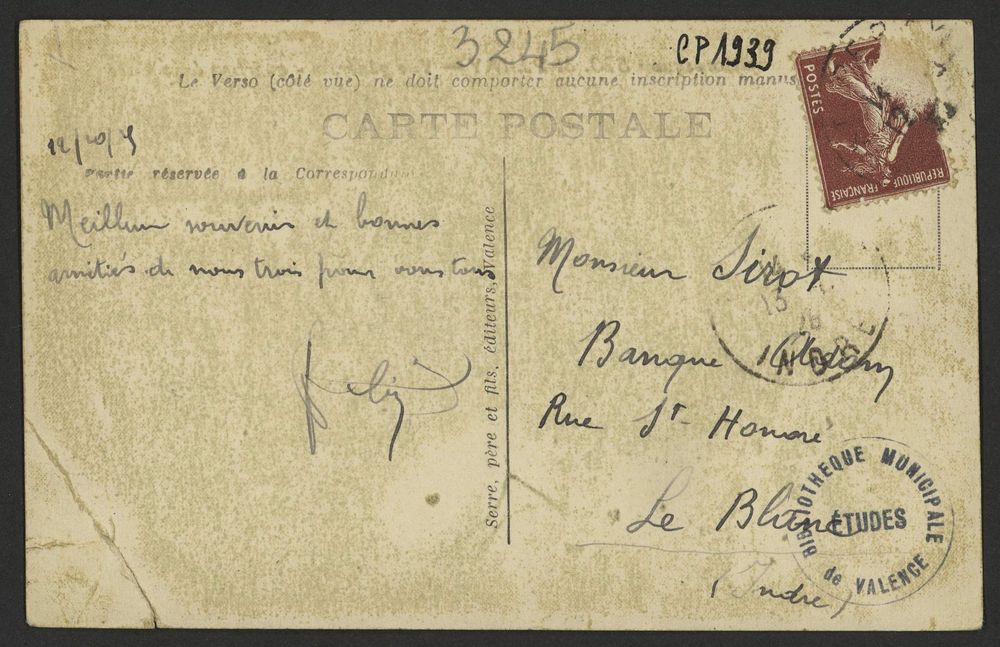 3245
CP1939
Le Verso (côté vue) ne doit comporter aucune inscription manus
CARTE POSTALE
POSTES
REPUBLIQUE FRANÇAISE
Partie réservée à la Correspondan
Meilleurs souvenirs et bonnes
amitiés de nous trois pour vous tous
Serre, père et fils, éditeurs, Valence
Monsieur Sirot
Banque
Rue St Honoré
Le Blanc
(Indre)
INDRE
BIBLIOTHEQUE MUNICIPALE
ÉTUDES
de VALENCE